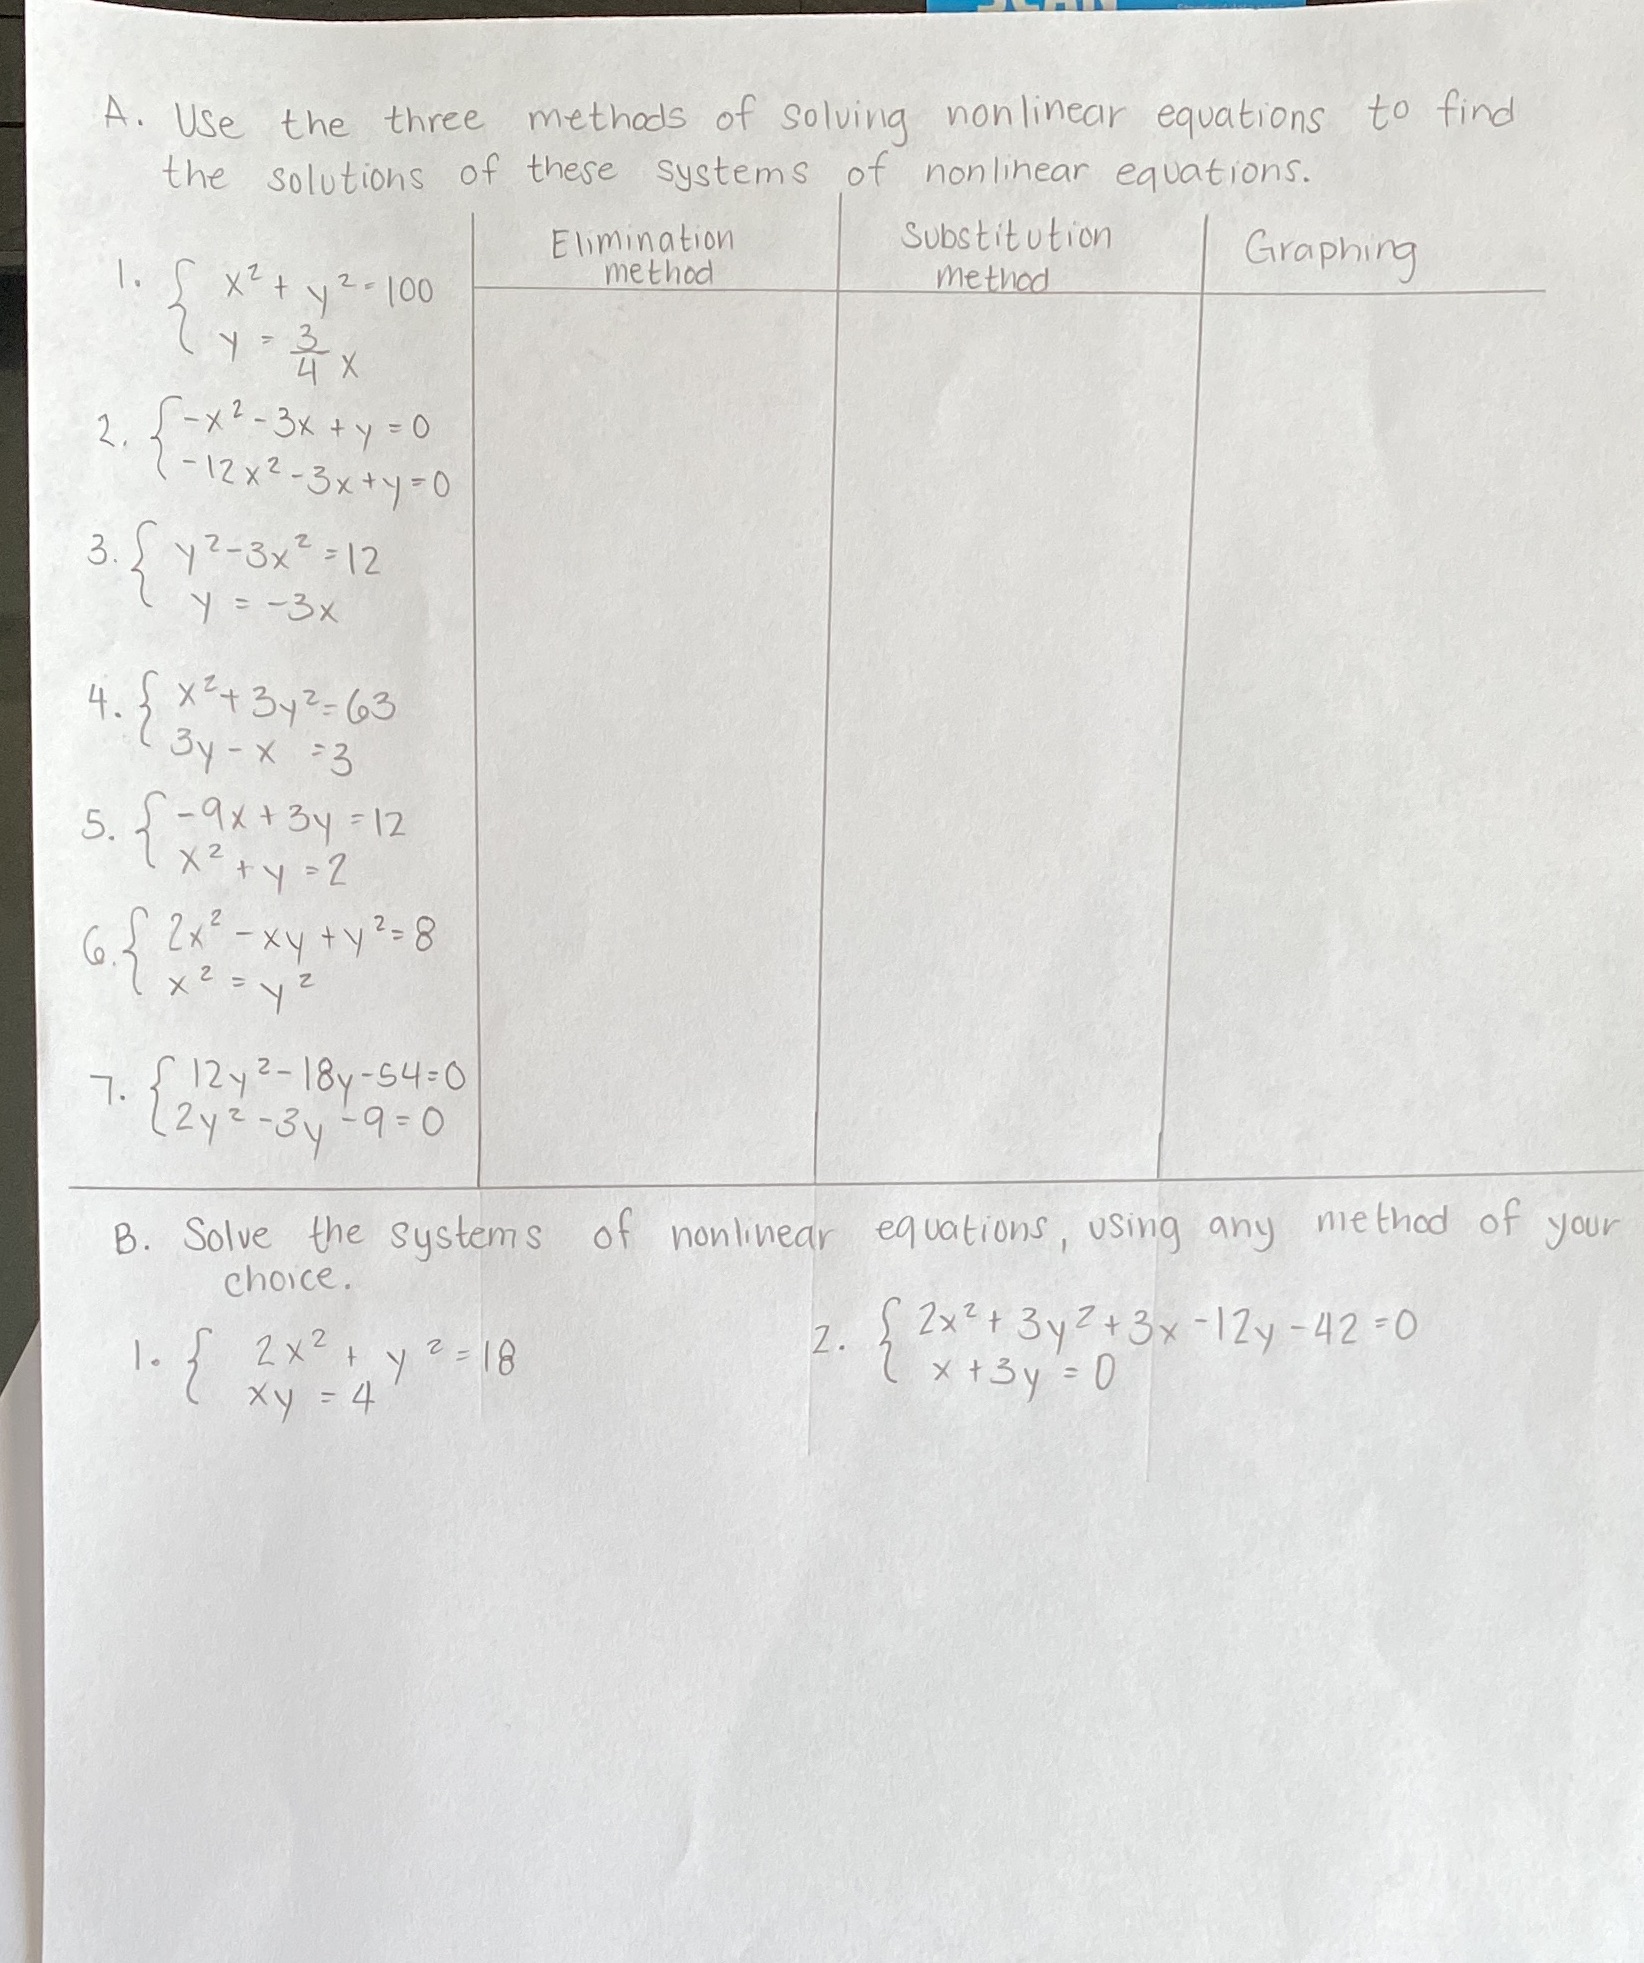 SCAN
A. Use the three methods of solving nonlinear equations to find
the solutions of these systems of nonlinear equations.
Elimination method
Substitution method
Graphing
1. { x² + y² = 100
y = 3/4 x
2. { -x² - 3x + y = 0
-12x² - 3x + y = 0
3. { y² - 3x² = 12
y = -3x
4. { x² + 3y² = 63
3y - x = 3
5. { -9x + 3y = 12
x² + y = 2
6. { 2x² - xy + y² = 8
x² = y²
7. { 12y² - 18y - 54 = 0
2y² - 3y - 9 = 0
B. Solve the systems of nonlinear equations, using any method of your
choice.
1. { 2x² + y² = 18
xy = 4
2. { 2x² + 3y² + 3x - 12y - 42 = 0
x + 3y = 0